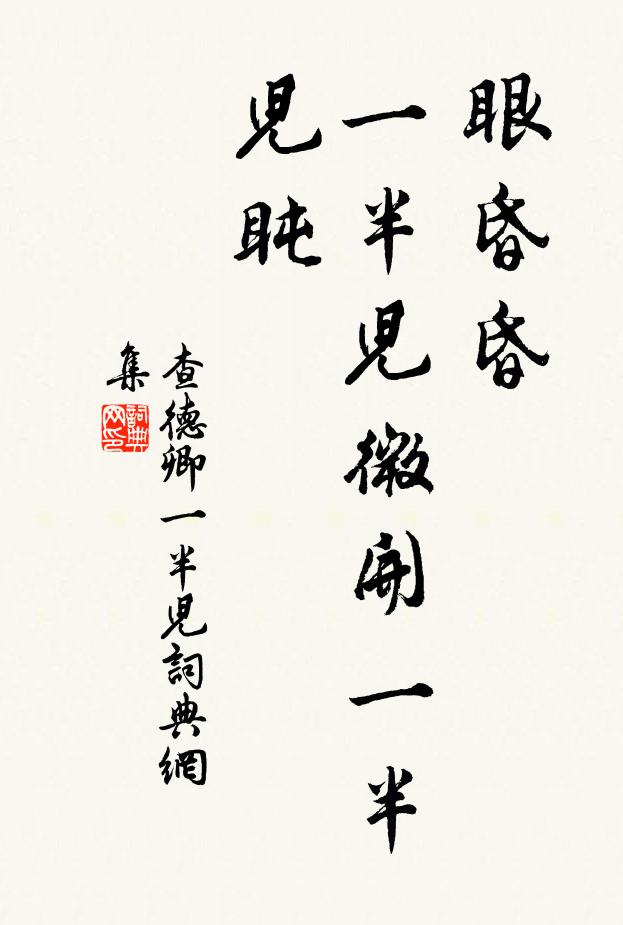 眼昏昏
一半兒微開一半
兒盹
查德卿一半兒詞典網
集
詞典
网印